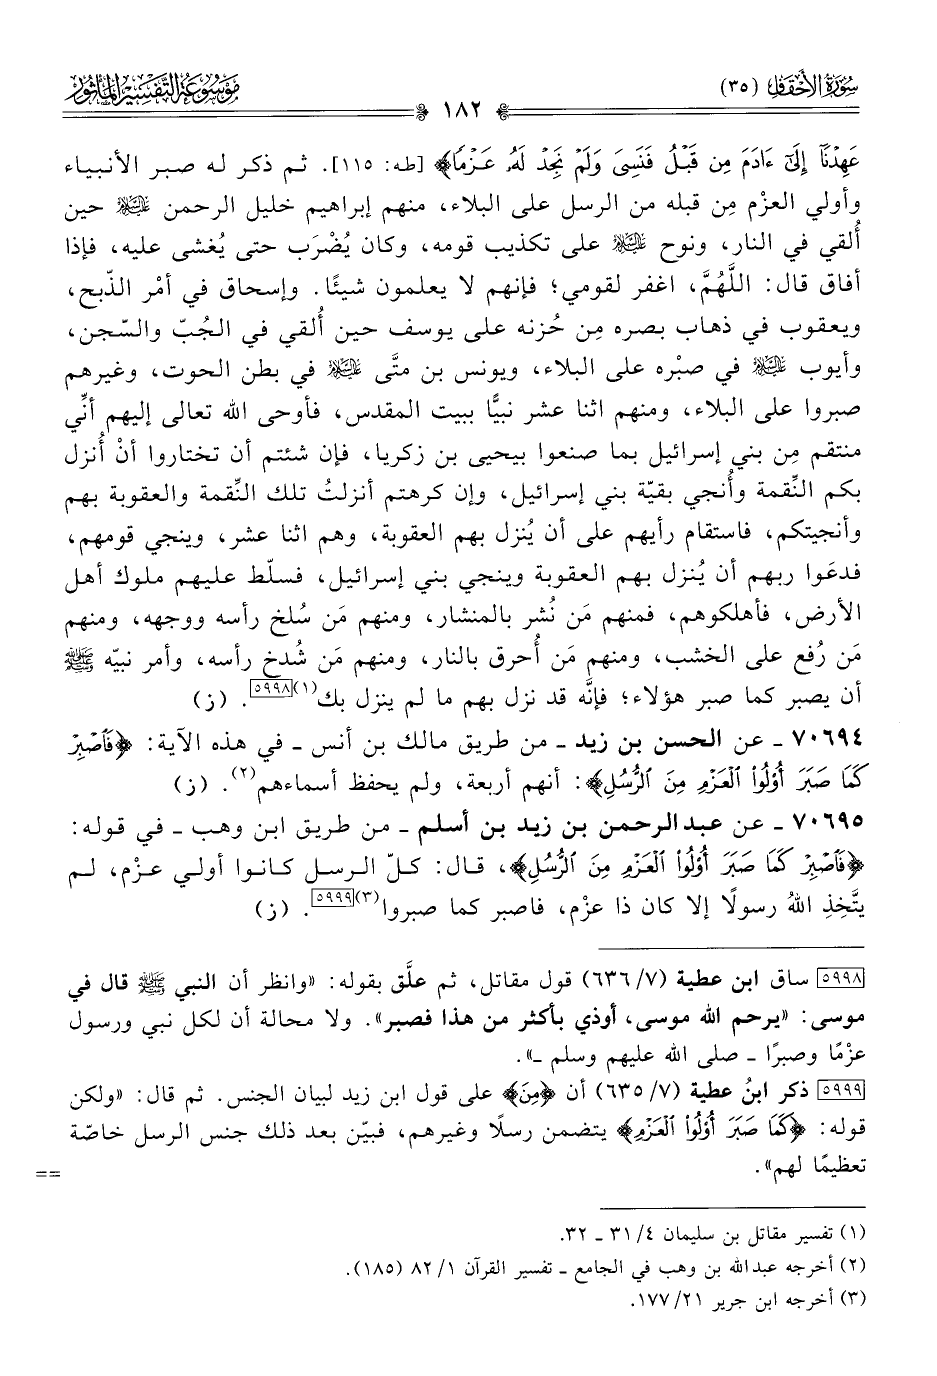 سورة الأحقاف (٣٥)
١٨٢
موسوعة التفسير المأثور
عَهِدْنَآ إِلَىٰٓ ءَادَمَ مِن قَبْلُ فَنَسِىَ وَلَمْ نَجِدْ لَهُۥ عَزْمًا﴾ [طه: ١١٥]. ثم ذكر له صبر الأنبياء
وأولي العزْم مِن قبله من الرسل على البلاء، منهم إبراهيم خليل الرحمن عليه السلام حين
أُلقي في النار، ونوح عليه السلام على تكذيب قومه، وكان يُضْرَب حتى يُغشى عليه، فإذا
أفاق قال: اللَّهُمَّ، اغفر لقومي؛ فإنهم لا يعلمون شيئًا. وإسحاق في أمْر الذّبح،
ويعقوب في ذهاب بصره مِن حُزنه على يوسف حين أُلقي في الجُبّ والسّجن،
وأيوب عليه السلام في صبْره على البلاء، ويونس بن متَّى عليه السلام في بطن الحوت، وغيرهم
صبروا على البلاء، ومنهم اثنا عشر نبيًّا ببيت المقدس، فأوحى الله تعالى إليهم أنِّي
منتقم مِن بني إسرائيل بما صنعوا بيحيى بن زكريا، فإن شئتم أن تختاروا أنْ أُنزل
بكم النِّقمة وأُنجي بقيّة بني إسرائيل، وإن كرهتم أنزلتُ تلك النِّقمة والعقوبة بهم
وأنجيتكم، فاستقام رأيهم على أن يُنزل بهم العقوبة، وهم اثنا عشر، وينجي قومهم،
فدعَوا ربهم أن يُنزل بهم العقوبة وينجي بني إسرائيل، فسلّط عليهم ملوك أهل
الأرض، فأهلكوهم، فمنهم مَن نُشر بالمنشار، ومنهم مَن سُلخ رأسه ووجهه، ومنهم
مَن رُفع على الخشب، ومنهم مَن أُحرق بالنار، ومنهم مَن شُدخ رأسه، وأمر نبيّه ﷺ
أن يصبر كما صبر هؤلاء؛ فإنَّه قد نزل بهم ما لم ينزل بك(١)[٥٩٩٨]. (ز)
٧٠٦٩٤ ـ عن الحسن بن زيد ـ من طريق مالك بن أنس ـ في هذه الآية: ﴿فَٱصْبِرْ
كَمَا صَبَرَ أُو۟لُوا۟ ٱلْعَزْمِ مِنَ ٱلرُّسُلِ﴾: أنهم أربعة، ولم يحفظ أسماءهم(٢). (ز)
٧٠٦٩٥ ـ عن عبد الرحمن بن زيد بن أسلم ـ من طريق ابن وهب ـ في قوله:
﴿فَٱصْبِرْ كَمَا صَبَرَ أُو۟لُوا۟ ٱلْعَزْمِ مِنَ ٱلرُّسُلِ﴾، قال: كلّ الرسل كانوا أولي عزْم، لم
يتَّخِذِ اللهُ رسولًا إلا كان ذا عزْم، فاصبر كما صبروا(٣)[٥٩٩٩]. (ز)
[٥٩٩٨] ساق ابن عطية (٧/ ٦٣٦) قول مقاتل، ثم علَّق بقوله: «وانظر أن النبي ﷺ قال في
موسى: «يرحم الله موسى، أوذي بأكثر من هذا فصبر». ولا محالة أن لكل نبي ورسول
عزْمًا وصبرًا ـ صلى الله عليهم وسلم ـ».
[٥٩٩٩] ذكر ابنُ عطية (٧/ ٦٣٥) أن ﴿مِنَ﴾ على قول ابن زيد لبيان الجنس. ثم قال: «ولكن
قوله: ﴿كَمَا صَبَرَ أُو۟لُوا۟ ٱلْعَزْمِ﴾ يتضمن رسلًا وغيرهم، فبيّن بعد ذلك جنس الرسل خاصّة
تعظيمًا لهم».
==
(١) تفسير مقاتل بن سليمان ٤/ ٣١ ـ ٣٢.
(٢) أخرجه عبد الله بن وهب في الجامع ـ تفسير القرآن ١/ ٨٢ (١٨٥).
(٣) أخرجه ابن جرير ٢١/ ١٧٧.